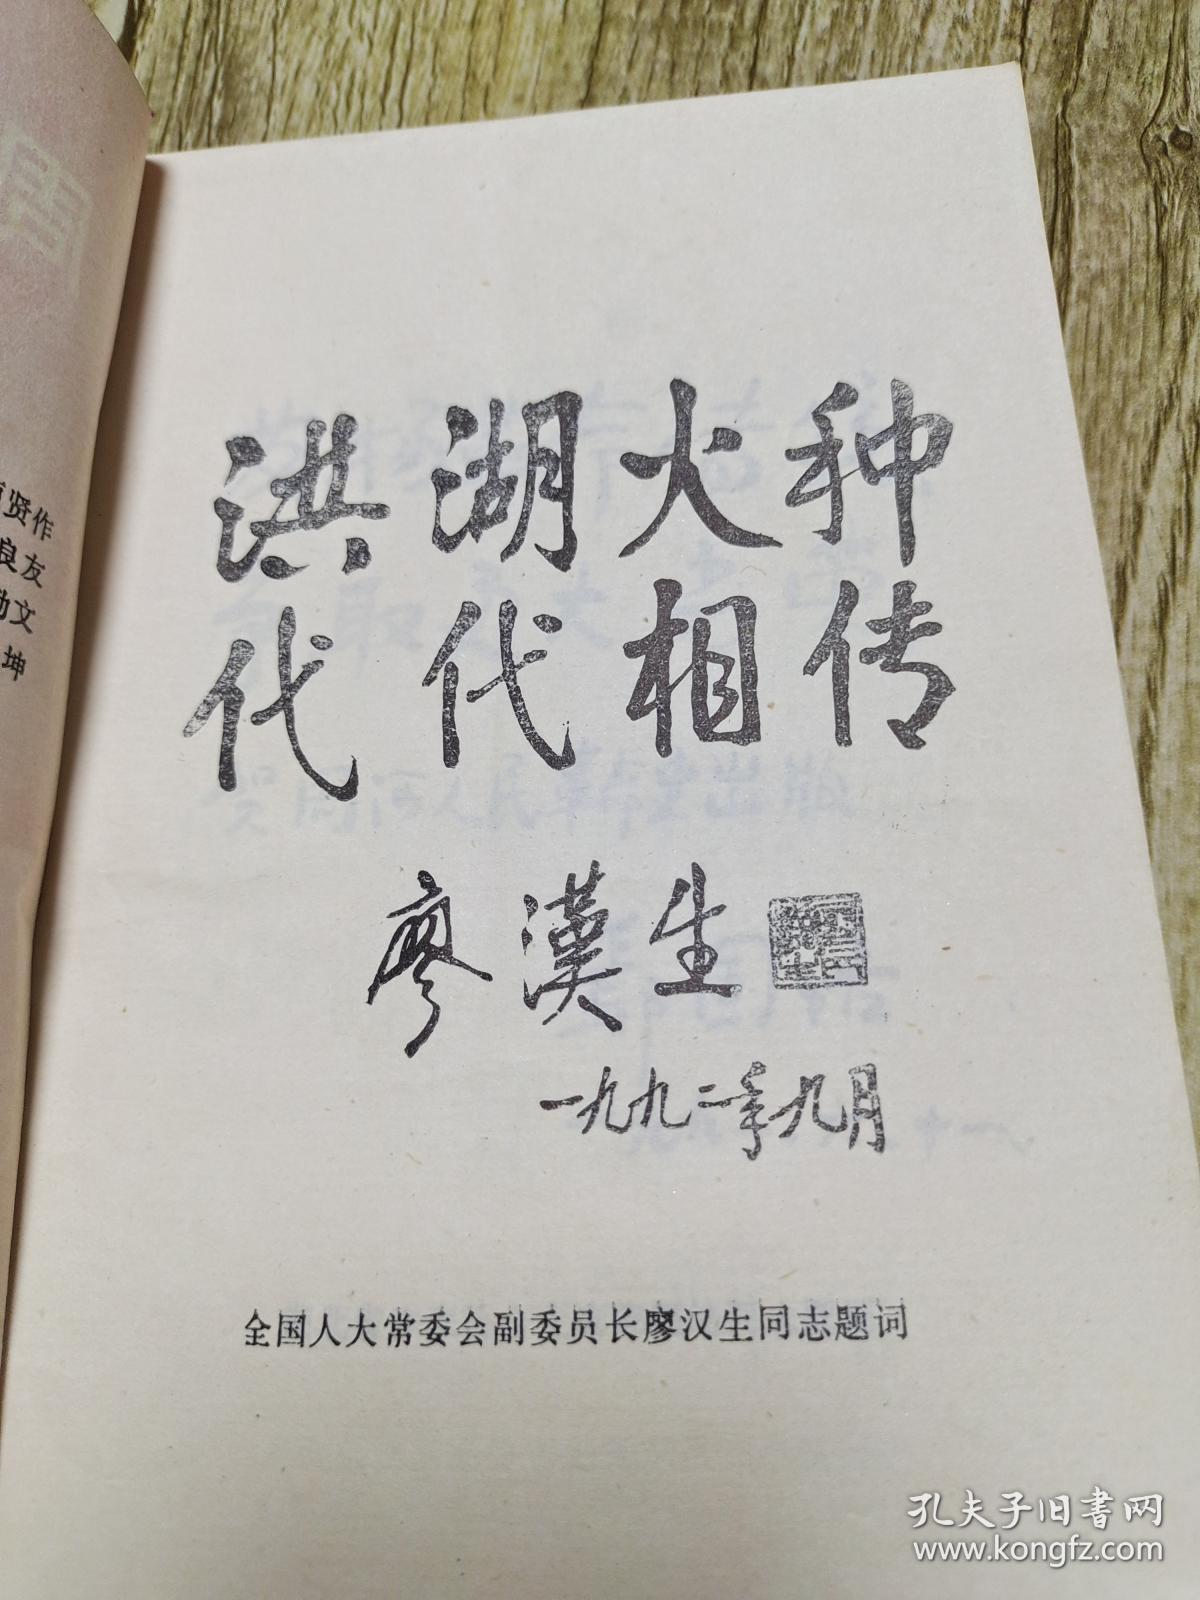 贤作
良友
文
坤
洪湖火种
代代相传
廖漢生
一九九二年九月
全国人大常委会副委员长廖汉生同志题词
孔夫子旧书网
www.kongfz.com